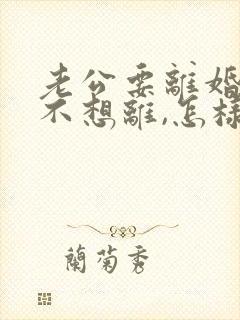 老公要離婚
不想離,怎樣
蘭菊秀